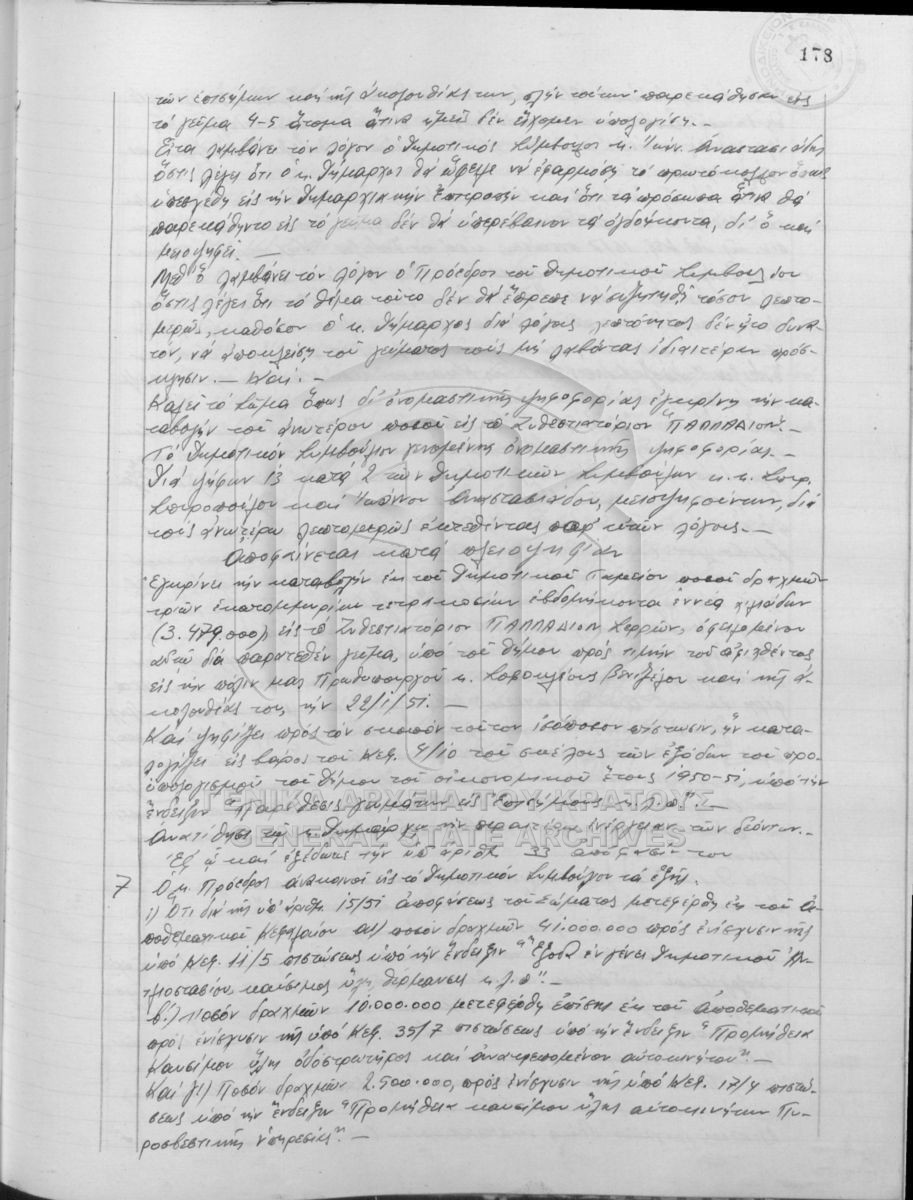 178
τῶν ἐπισήμων καὶ τῆς ἀκολουθίας των, πλὴν τούτων παρεκάθησαν εἰς
τὸ γεῦμα 4-5 ἄτομα ἅτινα ἡμεῖς δὲν εἴχομεν ὑπολογίσῃ.-
Εἶτα λαμβάνει τὸν λόγον ὁ Δημοτικὸς Σύμβουλος κ. Ἰωάν. Ἀναστασιάδης
ὅστις λέγει ὅτι ὁ κ. Δήμαρχος θὰ ὤφειλε νὰ ἐφαρμόσῃ τὸ πρωτόκολλον ὅπως
εἰς τὴν Δημαρχιακὴν Ἐπιτροπὴν καὶ ὅτι τὰ πρόσωπα ἅτινα θὰ
παρεκάθηντο εἰς τὸ γεῦμα δὲν θὰ ὑπερέβαινον τὰ ὀγδοήκοντα, δι' ὃ καὶ
μειοψηφεῖ. —
Μεθ' ὃ λαμβάνει τὸν λόγον ὁ Πρόεδρος τοῦ Δημοτικοῦ Συμβουλίου
ὅστις λέγει ὅτι τὸ θέμα τοῦτο δὲν θὰ ἔπρεπε νὰ συζητηθῇ τόσον λεπτο-
μερῶς, καθόσον ὁ κ. Δήμαρχος διὰ λόγους λεπτότητος δὲν ἦτο δυνα-
τόν, νὰ ἀποκλείσῃ τοῦ γεύματος τοὺς μὴ λαβόντας ἰδιαιτέραν πρόσ-
κλησιν. — Καί. —
Καλεῖ τὸ Σῶμα ὅπως δι' ὀνομαστικῆς ψηφοφορίας ἐγκρίνῃ τὴν κα-
ταβολὴν τοῦ ἀνωτέρου ποσοῦ εἰς τὸ Ζυθεστιατόριον "ΠΑΛΛΑΔΙΟΝ".-
Τὸ Δημοτικὸν Συμβούλιον γενομένης ὀνομαστικῆς ψηφοφορίας.-
Διὰ ψήφων 13 κατὰ 2 τῶν Δημοτικῶν Συμβούλων κ.κ. Σπυρ.
Σπυροπούλου καὶ Ἰωάννου Ἀναστασιάδου, μειοψηφούντων, διὰ
τοὺς ἀνωτέρω λεπτομερῶς ἐκτεθέντας παρ' αὐτῶν λόγους.—
Ἀποφαίνεται κατὰ πλειοψηφίαν
Ἐγκρίνει τὴν καταβολὴν ἐκ τοῦ Δημοτικοῦ Ταμείου ποσοῦ δραχμῶν
τριῶν ἑκατομμυρίων τετρακοσίων ἑβδομήκοντα ἐννέα χιλιάδων
(3.479.000) εἰς τὸ Ζυθεστιατόριον ΠΑΛΛΑΔΙΟΝ Σερρῶν, ὀφειλομένου
αὐτῷ διὰ παρατεθὲν γεῦμα, ὑπὸ τοῦ Δήμου πρὸς τιμὴν τοῦ ἀφιχθέντος
εἰς τὴν πόλιν μας Πρωθυπουργοῦ κ. Σοφοκλέους Βενιζέλου καὶ τῆς ἀ-
κολουθίας του τὴν 22/1/51. —
Καὶ ψηφίζει πρὸς τὸν σκοπὸν τοῦτον ἰσόποσον πίστωσιν, ἣν κατα-
λογίζει εἰς βάρος τοῦ Κεφ. 4/10 τοῦ σκέλους τῶν ἐξόδων τοῦ προ-
ϋπολογισμοῦ τοῦ Δήμου τοῦ οἰκονομικοῦ ἔτους 1950-51, ὑπὸ τὴν
ἔνδειξιν "Παράθεσις γευμάτων εἰς ἐπισήμους κ.λ.π.".—
Ἀνατίθησι τῷ κ. Δημάρχῳ τὴν περαιτέρω ἐνέργειαν τῶν δεόντων.—
Ἐξ ᾧ καὶ ἐξεδόθη τὴν ὑπ' ἀριθ. 33 ἀπόφασίν του
7 Ὁ κ. Πρόεδρος ἀνακοινοῖ εἰς τὸ Δημοτικὸν Συμβούλιον τὰ ἑξῆς.
1) Ὅτι διὰ τῆς ὑπ' ἀριθμ. 15/51 ἀποφάσεως τοῦ Σώματος μετεφέρθη ἐκ τοῦ Ἀ-
ποθεματικοῦ Κεφαλαίου α) ποσὸν δραχμῶν 41.000.000 πρὸς ἐνίσχυσιν τῆς
ὑπὸ Κεφ. 11/5 πιστώσεως ὑπὸ τὴν ἔνδειξιν "Ἔξοδα ἐν γένει Δημοτικοῦ
καύσιμος ὕλη, θέρμανσις κ.λ.π.".—
β.) Ποσὸν δραχμῶν 10.000.000 μετεφέρθη ἐπίσης ἐκ τοῦ Ἀποθεματικοῦ
πρὸς ἐνίσχυσιν τῆς ὑπὸ Κεφ. 35/7 πιστώσεως ὑπὸ τὴν ἔνδειξιν "Προμήθεια
καυσίμου ὕλης ὁδοστρωτῆρος καὶ ἀνατρεπομένου αὐτοκινήτου".—
Καὶ γ) Ποσὸν δραχμῶν 2.500.000, πρὸς ἐνίσχυσιν τῆς ὑπὸ Κεφ. 17/4 πιστώ-
σεως ὑπὸ τὴν ἔνδειξιν "Προμήθεια καυσίμου ὕλης αὐτοκινήτων Πυ-
ροσβεστικῆς ὑπηρεσίας".—
ΓΕΝΙΚΑ ΑΡΧΕΙΑ ΤΟΥ ΚΡΑΤΟΥΣ
GENERAL STATE ARCHIVES